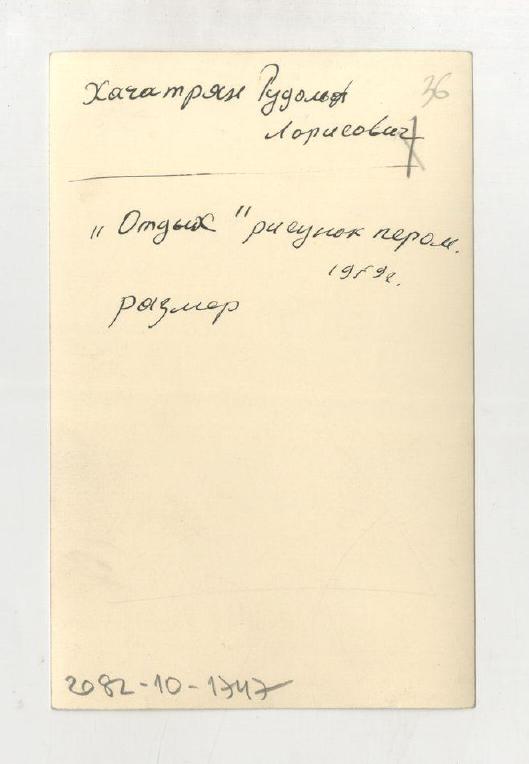 Хачатрян Рудольф
36
Лорисович
„Отдых" рисунок пером.
1959г.
размер
2082-10-1747